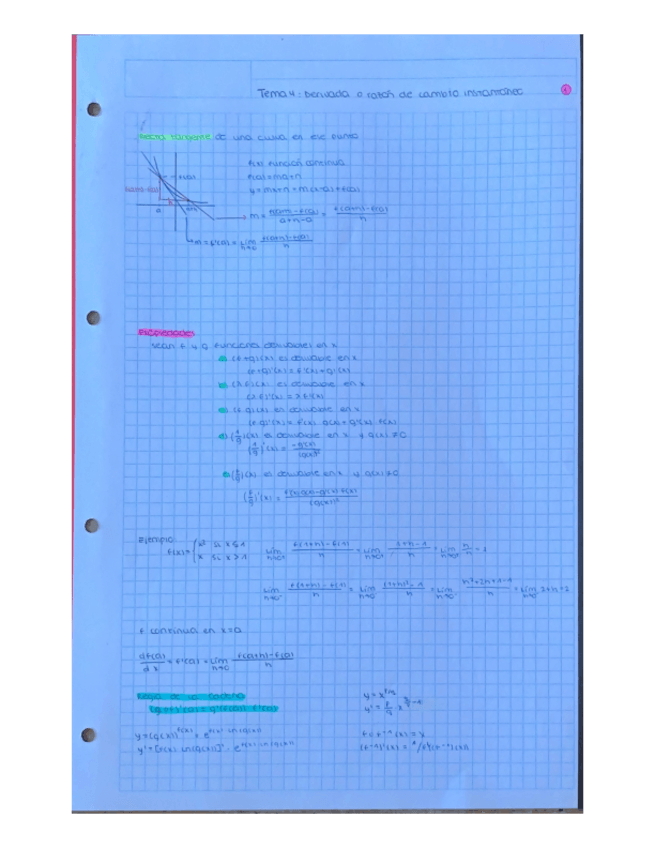 Tema 4: Derivada o razón de cambio instantáneo
1
Recta tangente de una curva en ese punto
f(x) función continua
n(a) = ma+n
y = mx+n = m(x-a)+f(a)
f(a)
a
h
m = f(a+h)-f(a) / a+h-a = f(a+h)-f(a) / h
m = f'(a) = lim h→0 f(a+h)-f(a) / h
Propiedades
Sean f y g funciones derivables en x
a) (f+g)(x) es derivable en x
(f+g)'(x) = f'(x)+g'(x)
b) (λf)(x) es derivable en x
(λf)'(x) = λf'(x)
c) (f·g)(x) es derivable en x
(f·g)'(x) = f'(x)·g(x)+g'(x)·f(x)
d) (1/g)(x) es derivable en x y g(x)≠0
(1/g)'(x) = -g'(x) / (g(x))²
e) (f/g)(x) es derivable en x y g(x)≠0
(f/g)'(x) = f'(x)·g(x)-g'(x)·f(x) / (g(x))²
Ejemplo
f(x) = { x² si x≤1
x si x>1
lim h→0⁺ f(1+h)-f(1) / h = lim h→0⁺ 1+h-1 / h = lim h→0⁺ h/h = 1
lim h→0⁻ f(1+h)-f(1) / h = lim h→0⁻ (1+h)²-1 / h = lim h→0⁻ h²+2h+1-1 / h = lim h→0⁻ 2+h = 2
f continua en x=a
df(a)/dx = f'(a) = lim h→0 f(a+h)-f(a) / h
Regla de la cadena
(g∘f)'(a) = g'(f(a))·f'(a)
y = x^(p/q)
y' = p/q · x^(p/q-1)
y = (g(x))^f(x) = e^(f(x)·ln(g(x)))
y' = [f(x)·ln(g(x))]' · e^(f(x)·ln(g(x)))
f∘f⁻¹(x) = x
(f⁻¹)'(x) = 1/f'(f⁻¹(x))